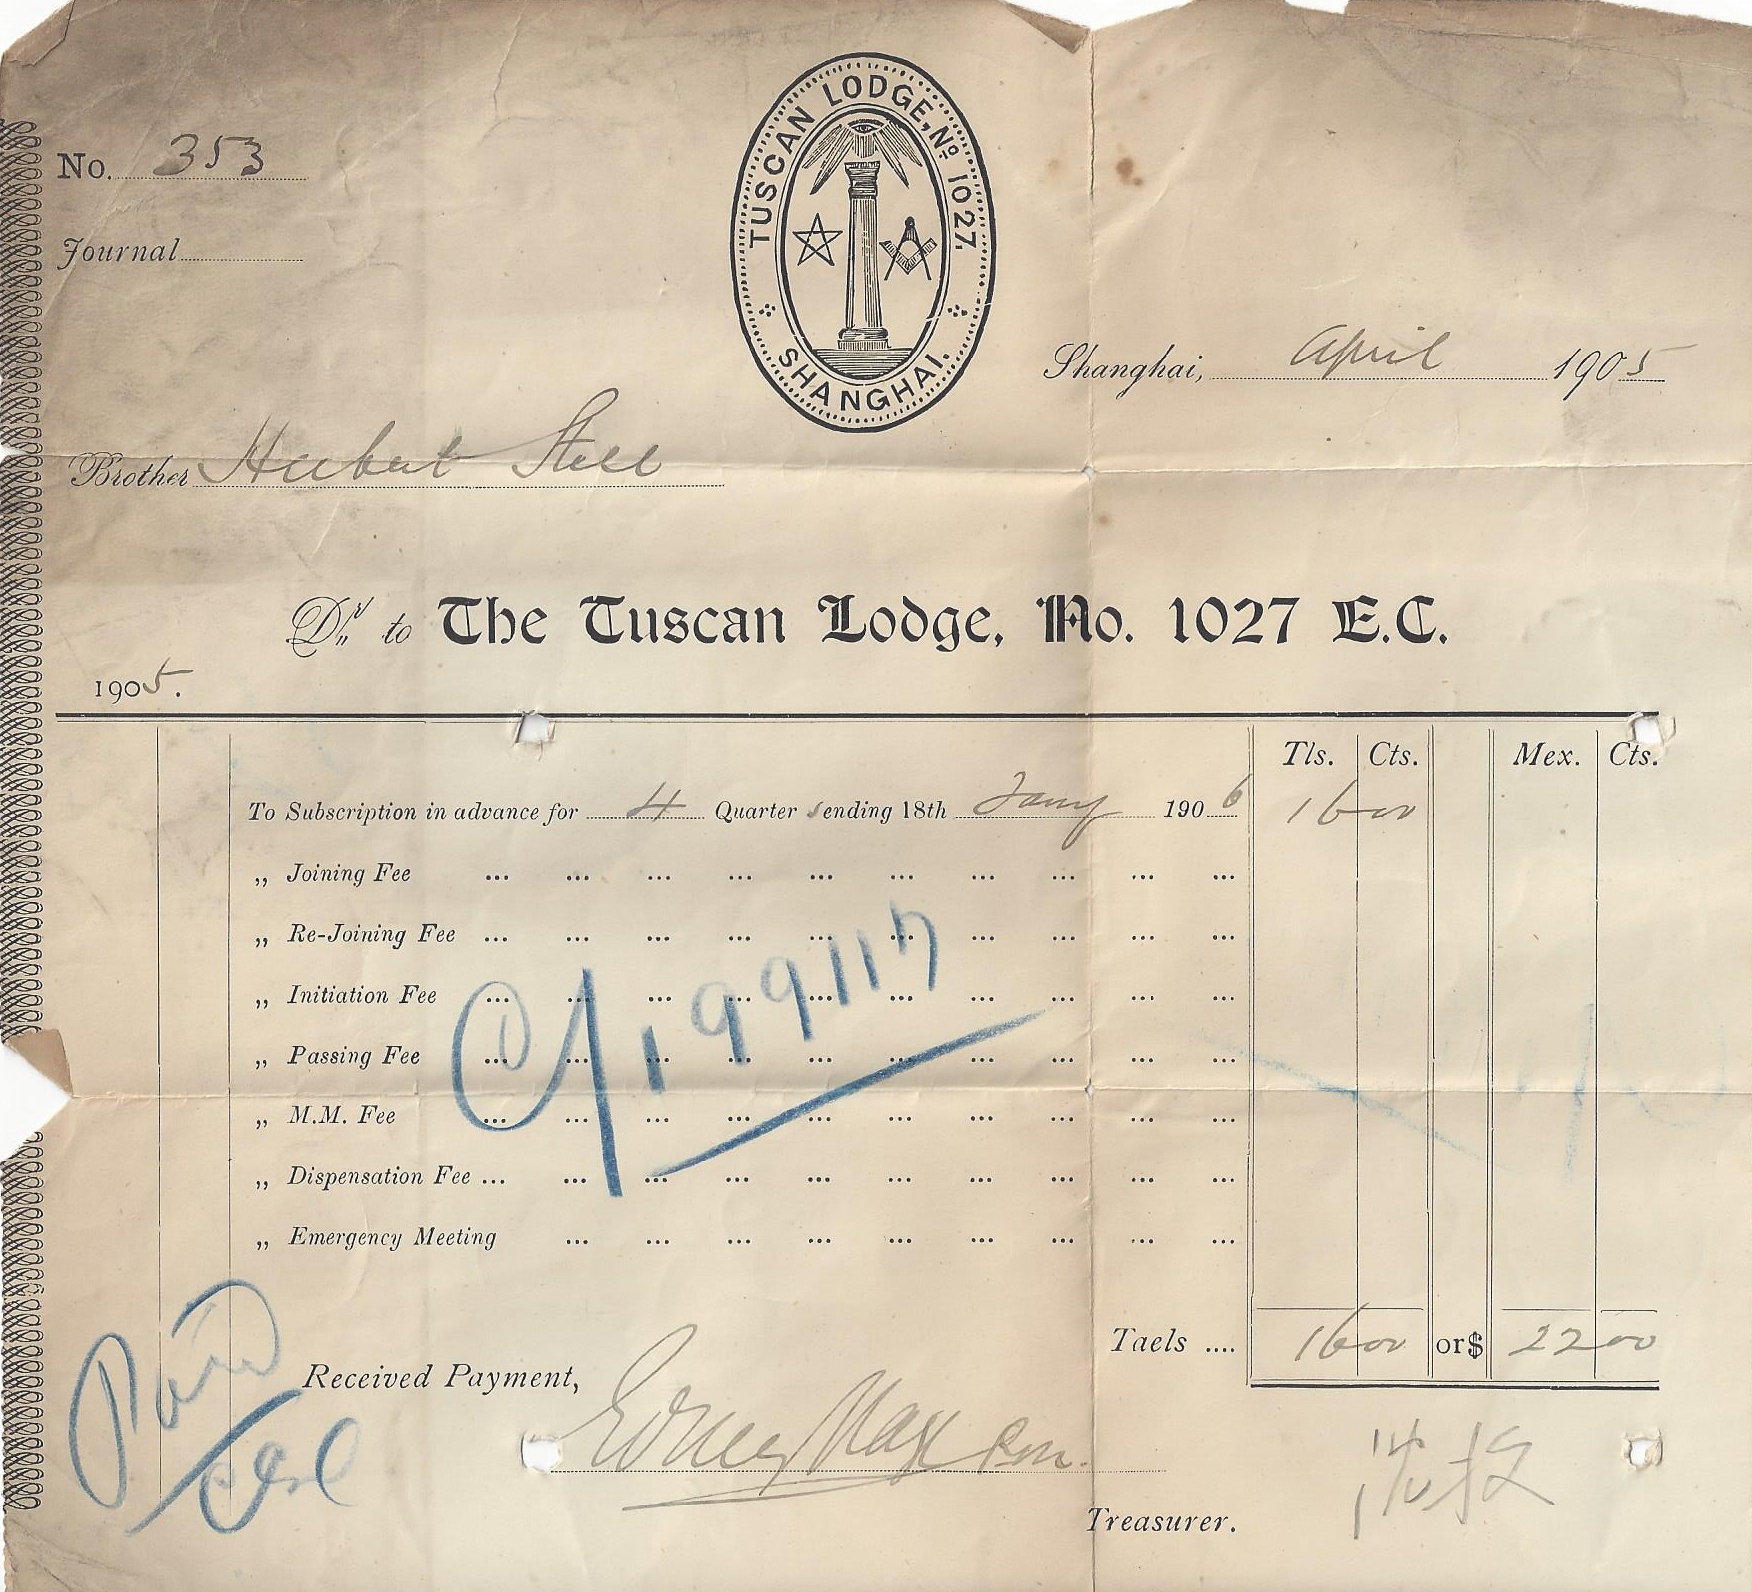 No. 353
TUSCAN LODGE, No 1027.
SHANGHAI.
Journal
Shanghai, April 1905
Brother Herbert Stell
Dr. to The Tuscan Lodge, No. 1027 E.C.
1905.
Tls. Cts. Mex. Cts.
To Subscription in advance for 4 Quarters ending 18th Jany 1906 16 00
„ Joining Fee ... ... ... ... ... ... ... ... ... ...
„ Re-Joining Fee ... ... ... ... ... ... ... ... ... ...
„ Initiation Fee ... ... ... ... ... ... ... ... ... ...
„ Passing Fee ... ... ... ... ... ... ... ... ... ...
„ M.M. Fee ... ... ... ... ... ... ... ... ... ...
„ Dispensation Fee ... ... ... ... ... ... ... ... ... ...
„ Emergency Meeting ... ... ... ... ... ... ... ... ...
Taels .... 16 00 or $ 22 00
Paid
Received Payment,
Treasurer.